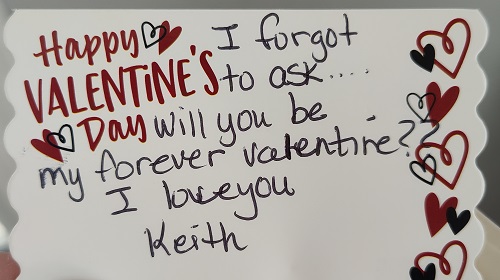 Happy I forgot
VALENTINE'S to ask.....
Day will you be
my forever valentine??
I love you
Keith